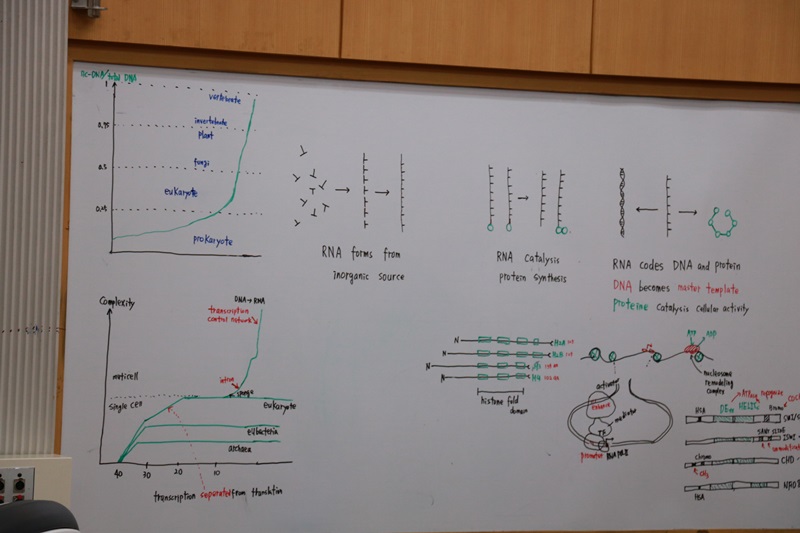 nc-DNA/total DNA
1
vertebrate
0.75
invertebrate
Plant
0.5
fungi
eukaryote
0.25
prokaryote
RNA forms from
inorganic source
RNA catalysis
protein synthesis
RNA codes DNA and protein
DNA becomes master template
Proteine catalysis cellular activity
Complexity
DNA → RNA
transcription
control network
multicell
intron
single cell
eukaryote
eubacteria
archaea
40
30
20
10
transcription separated from
N
H2A
N
H2B
N
N
H4
histone fold
domain
ATP
ADP
nucleosome
remodeling
complex
activator
enhancer
mediator
TF
promoter
RNA pol II
ATPase
HSA
DExx
HELICc
Bromo
SWI/S
SANT SLIDE
ISWI
chromo
CHD
CH3
HSA
INO8